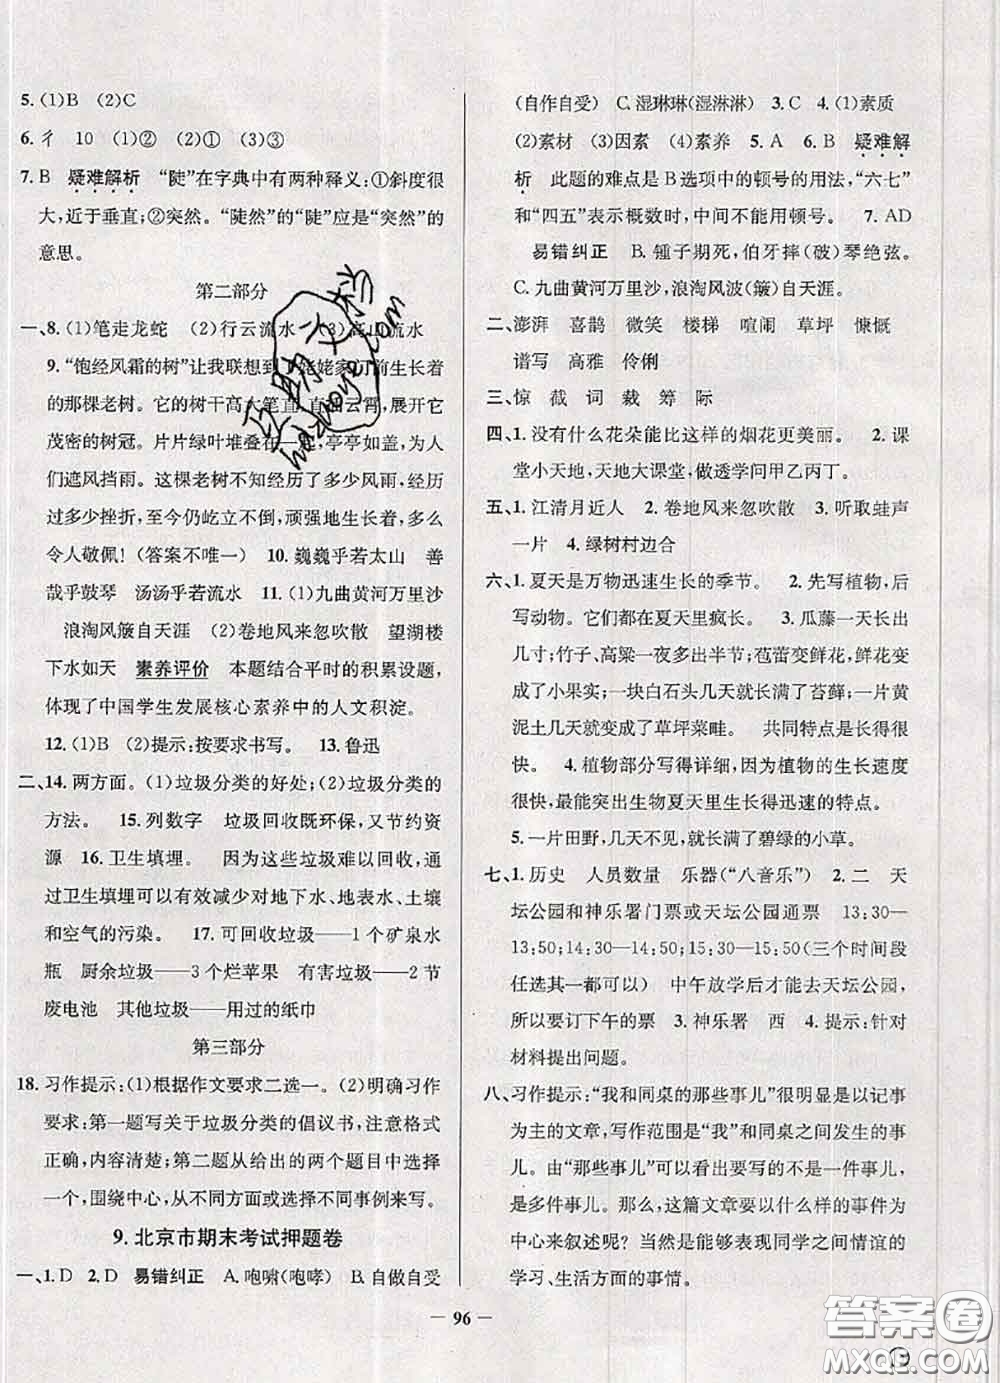 5. (1)B (2)C
6. 彳 10 (1)② (2)① (3)③
7. B 疑难解析 “陡”在字典中有两种释义:①斜度很
大,近于垂直;②突然。“陡然”的“陡”应是“突然”的
意思。
第二部分
一、8. (1)笔走龙蛇 (2)行云流水 (3)高山流水
9. “饱经风霜的树”让我联想到了姥姥家门前生长着
的那棵老树。它的树干高大笔直,直插云霄,展开它
茂密的树冠。片片绿叶堆叠在一起,亭亭如盖,为人
们遮风挡雨。这棵老树不知经历了多少风雨,经历
过多少挫折,至今仍屹立不倒,顽强地生长着,多么
令人敬佩!(答案不唯一) 10. 巍巍乎若太山 善
哉乎鼓琴 汤汤乎若流水 11. (1)九曲黄河万里沙
浪淘风簸自天涯 (2)卷地风来忽吹散 望湖楼
下水如天 素养评价 本题结合平时的积累设题,
体现了中国学生发展核心素养中的人文积淀。
12. (1)B (2)提示:按要求书写。 13. 鲁迅
二、14. 两方面。(1)垃圾分类的好处;(2)垃圾分类的
方法。 15. 列数字 垃圾回收既环保,又节约资
源 16. 卫生填埋。 因为这些垃圾难以回收,通
过卫生填埋可以有效减少对地下水、地表水、土壤
和空气的污染。 17. 可回收垃圾——1个矿泉水
瓶 厨余垃圾——3个烂苹果 有害垃圾——2节
废电池 其他垃圾——用过的纸巾
第三部分
18. 习作提示:(1)根据作文要求二选一。(2)明确习作
要求:第一题写关于垃圾分类的倡议书,注意格式
正确,内容清楚;第二题从给出的两个题目中选择
一个,围绕中心,从不同方面或选择不同事例来写。
9. 北京市期末考试押题卷
一、1. D 2. D 易错纠正 A. 咆啸(咆哮) B. 自做自受
(自作自受) C. 湿琳琳(湿淋淋) 3. C 4. (1)素质
(2)素材 (3)因素 (4)素养 5. A 6. B 疑难解
析 此题的难点是B选项中的顿号的用法,“六七”
和“四五”表示概数时,中间不能用顿号。 7. AD
易错纠正 B. 锺子期死,伯牙摔(破)琴绝弦。
C. 九曲黄河万里沙,浪淘风波(簸)自天涯。
二、澎湃 喜鹊 微笑 楼梯 喧闹 草坪 慷慨
谱写 高雅 伶俐
三、惊 截 词 裁 筹 际
四、1. 没有什么花朵能比这样的烟花更美丽。 2. 课
堂小天地,天地大课堂,做透学问甲乙丙丁。
五、1. 江清月近人 2. 卷地风来忽吹散 3. 听取蛙声
一片 4. 绿树村边合
六、1. 夏天是万物迅速生长的季节。 2. 先写植物,后
写动物。它们都在夏天里疯长。 3. 瓜藤一天长
出几寸;竹子、高粱一夜多出半节;苞蕾变鲜花,鲜花变成
了小果实;一块白石头几天就长满了苔藓;一片黄
泥土几天就变成了草坪菜畦。 共同特点是长得
很快。 4. 植物部分写得详细,因为植物的生长速度
很快,最能突出生物夏天里生长得迅速的特点。
5. 一片田野,几天不见,就长满了碧绿的小草。
七、1. 历史 人员数量 乐器(“八音乐”) 2. 二 天
坛公园和神乐署门票或天坛公园通票 13:30—
13:50;14:30—14:50;15:30—15:50(三个时间段
任选其一都可以) 中午放学后才能去天坛公园,
所以要订下午的票 3. 神乐署 西 4. 提示:针对
材料提出问题。
八、习作提示:“我和同桌的那些事儿”很明显是以记事
为主的文章,写作范围是“我”和同桌之间发生的事
儿。由“那些事儿”可以看出要写的不是一件事儿,
是多件事儿。那么,这篇文章要以什么样的事件为
中心来叙述呢?当然是能够表现同学之间情谊的
学习、生活方面的事情。
— 96 —
答案圈
MXQE.COM